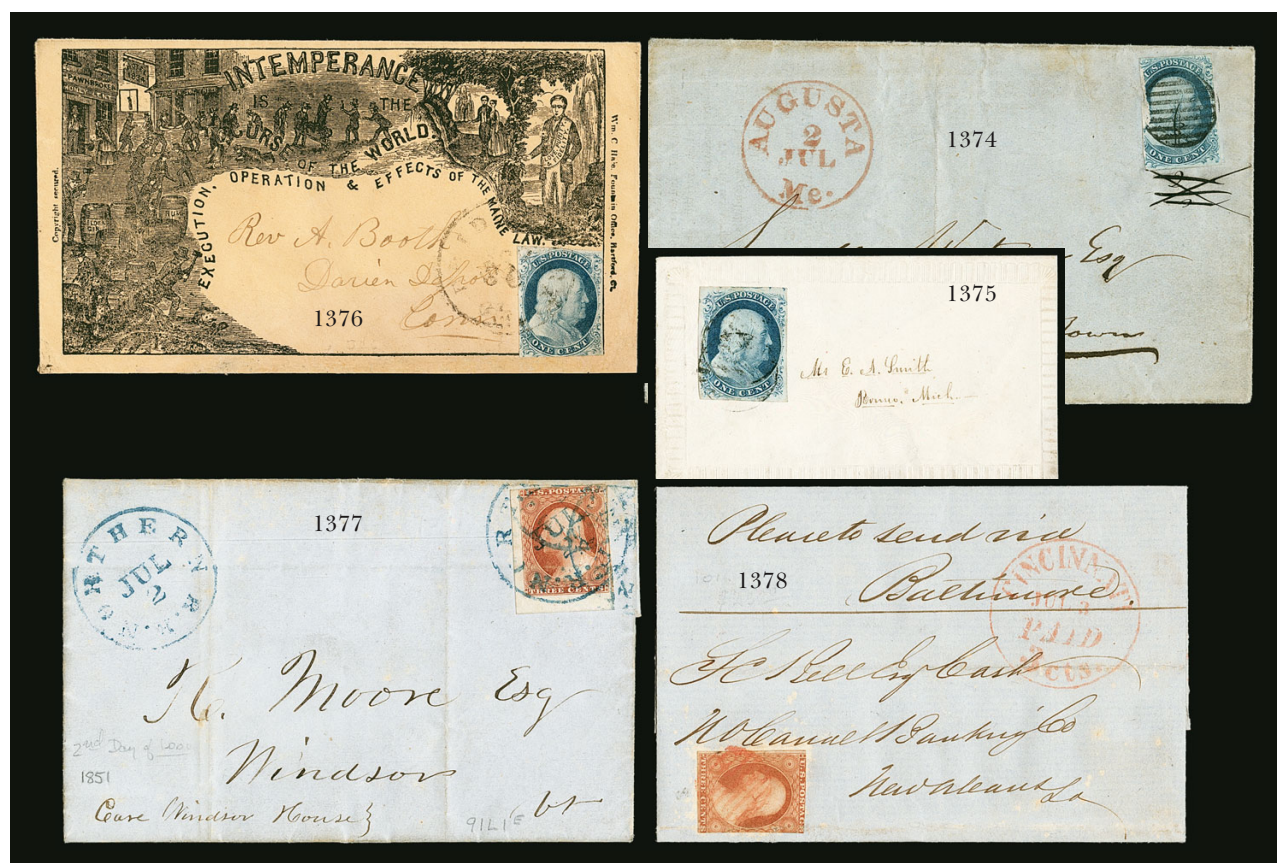 INTEMPERANCE
IS THE
CURSE OF THE WORLD.
EXECUTION, OPERATION & EFFECTS OF THE MAINE LAW.
PAWNBROKER
Copyright secured.
Wm. C. Hale, Fountain Office, Hartford, Ct.
Rev A. Booth
Darien Depot
Conn
1376
U.S. POSTAGE
ONE CENT
AUGUSTA
2
JUL
Me.
1374
U.S. POSTAGE
ONE CENT
Esq
Town
1375
U.S. POSTAGE
ONE CENT
Mr E. A. Smith
Mich.
NORTHERN R.R. N.H.
JUL
2
1377
U.S. POSTAGE
JUL
THREE CENTS
Moore Esq
Windsor
Vt
Care Windsor House
2nd Day of
1851
91L1E
Please to send via
Baltimore.
1378
CINCINNATI
JUL 3
PAID
3 cts.
Cash
N O Canal & Banking Co
New Orleans
La
U.S. POSTAGE
THREE CENTS